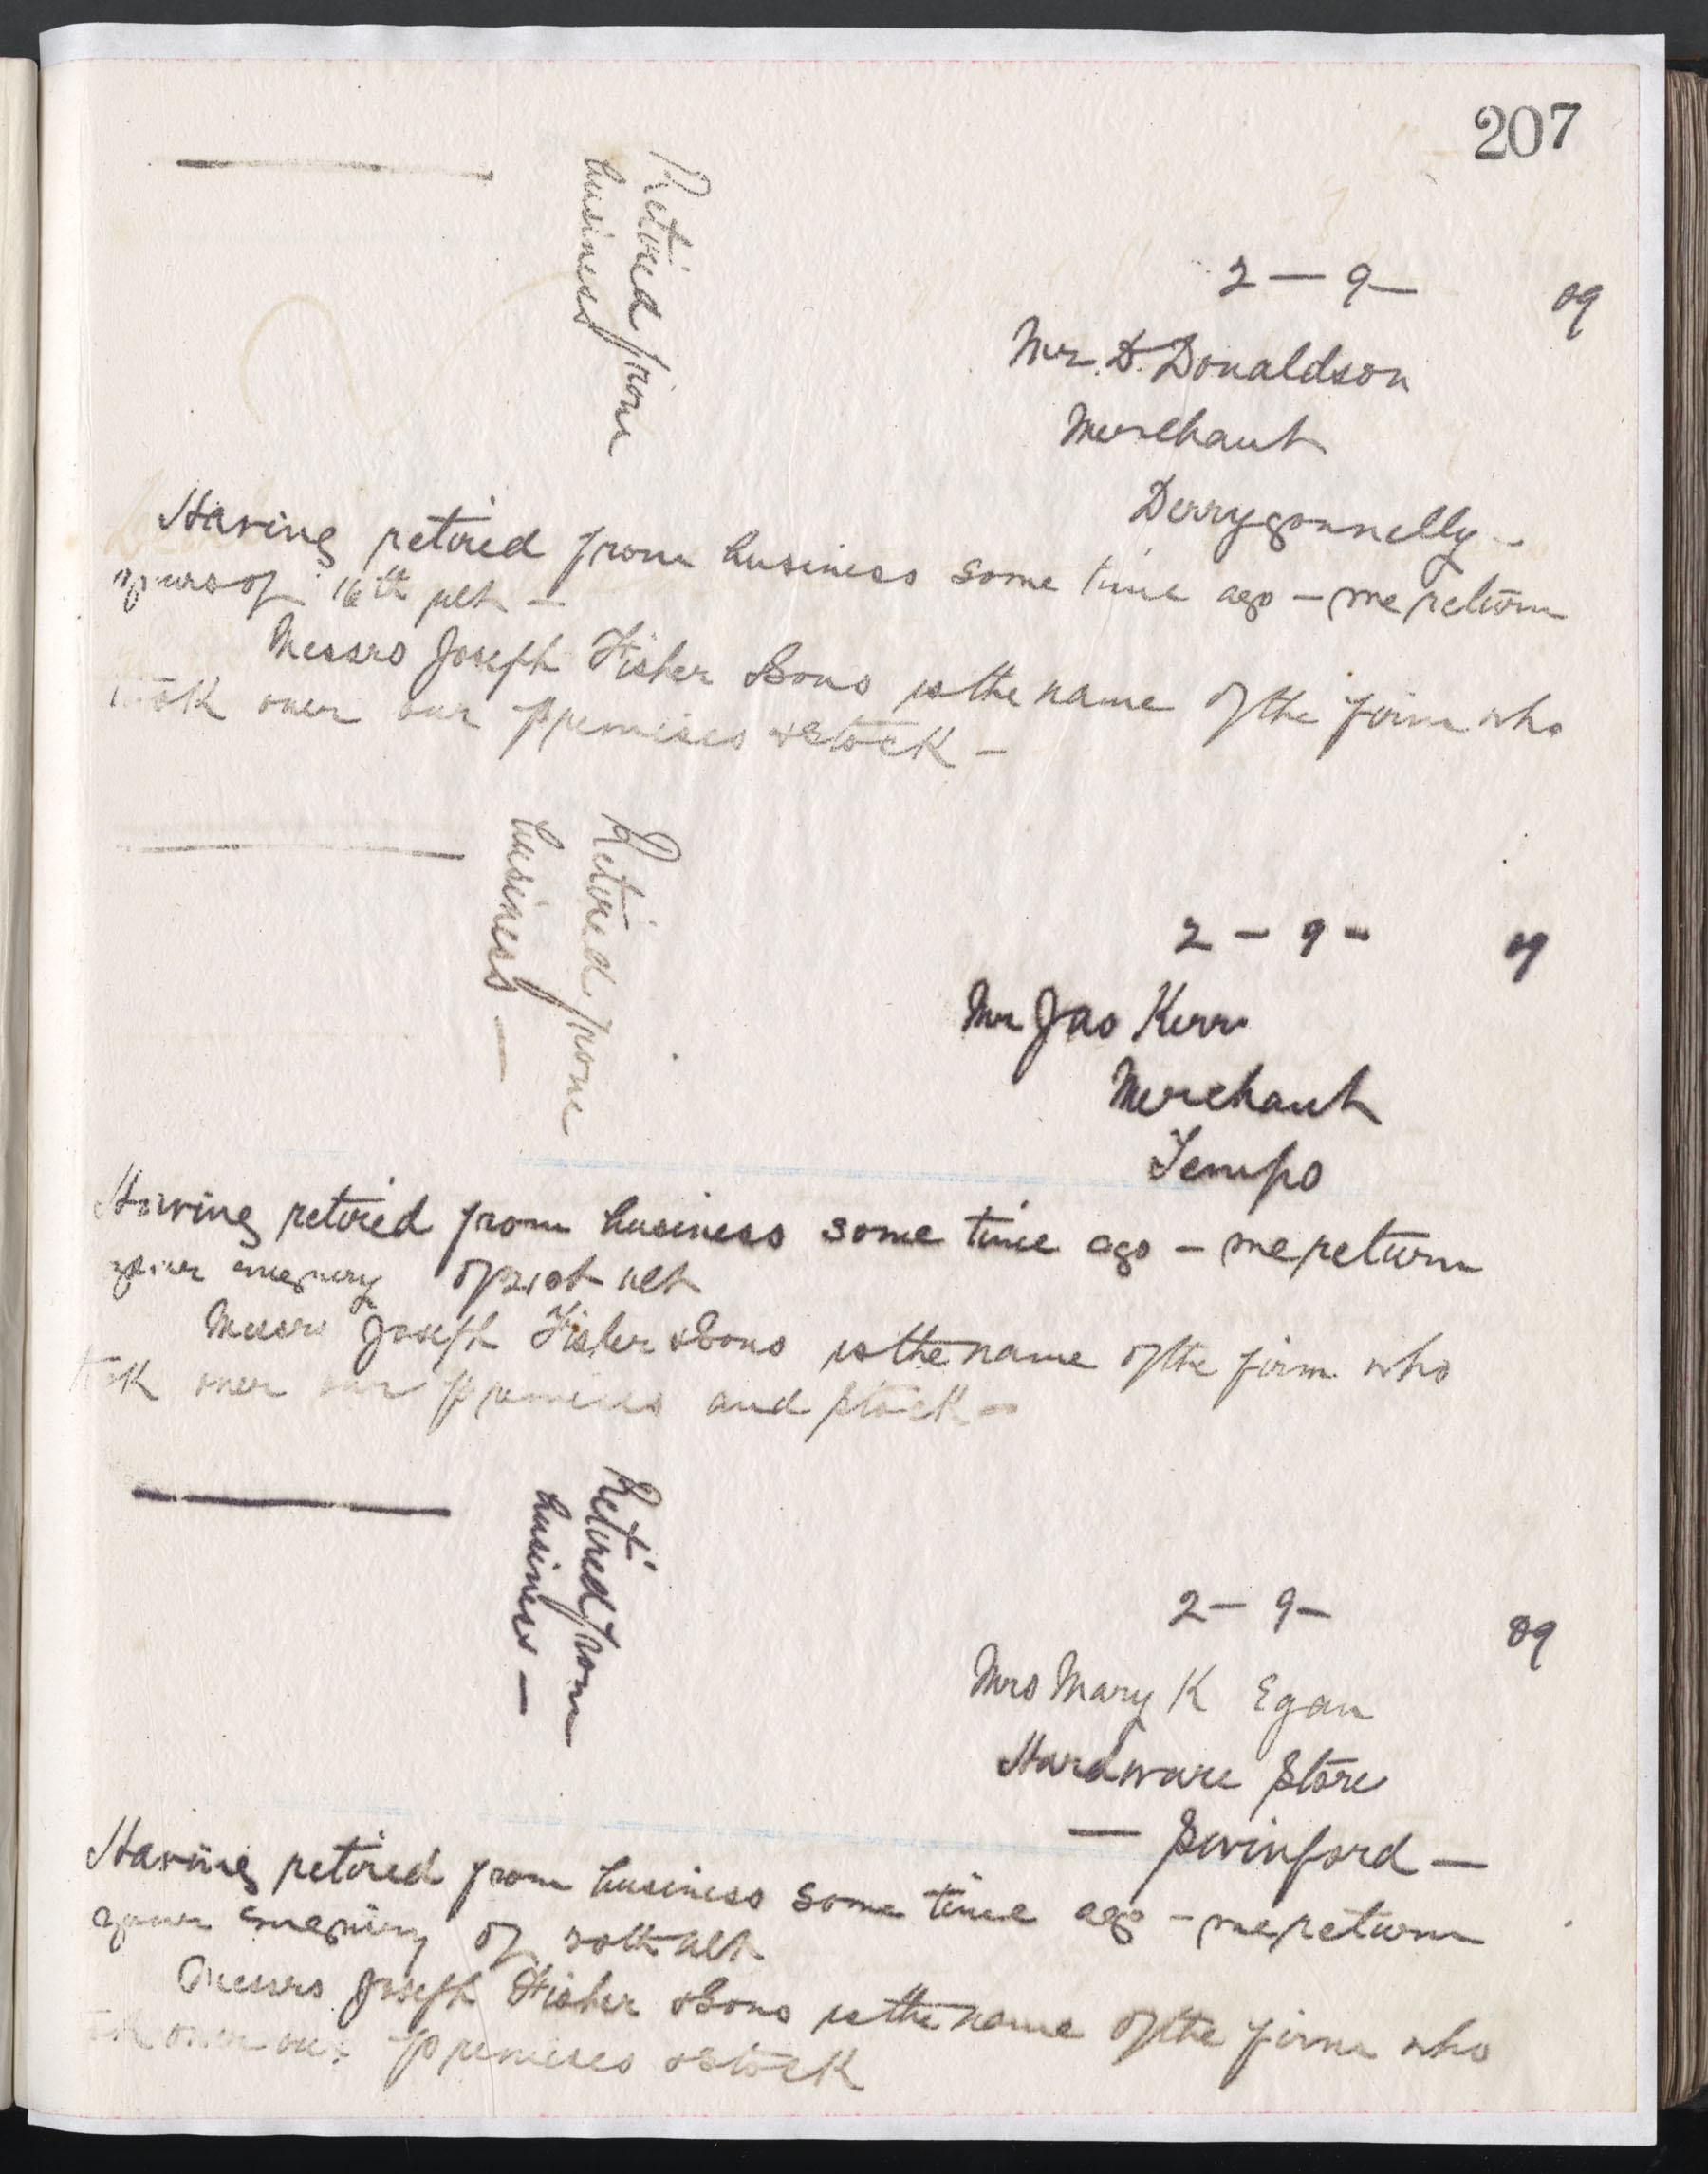 207
Retired from
business
2 — 9 — 09
Mr. D. Donaldson
Merchant
Derrygonnelly —
Having retired from business some time ago — we return
yours of 16th ult —
Messrs Joseph Fisher & Sons is the name of the firm who
took over our premises & stock —
Retired from
business —
2 — 9 — 09
Mr Jas Kerr
Merchant
Tempo
Having retired from business some time ago — we return
your enquiry of 21st ult
Messrs Joseph Fisher & Sons is the name of the firm who
took over our premises and stock —
Retired from
business —
2 — 9 — 09
Mrs Mary K Egan
Hardware Store
— Swinford —
Having retired from business some time ago — we return
your enquiry of 20th ult
Messrs Joseph Fisher & Sons is the name of the firm who
took over our premises & stock